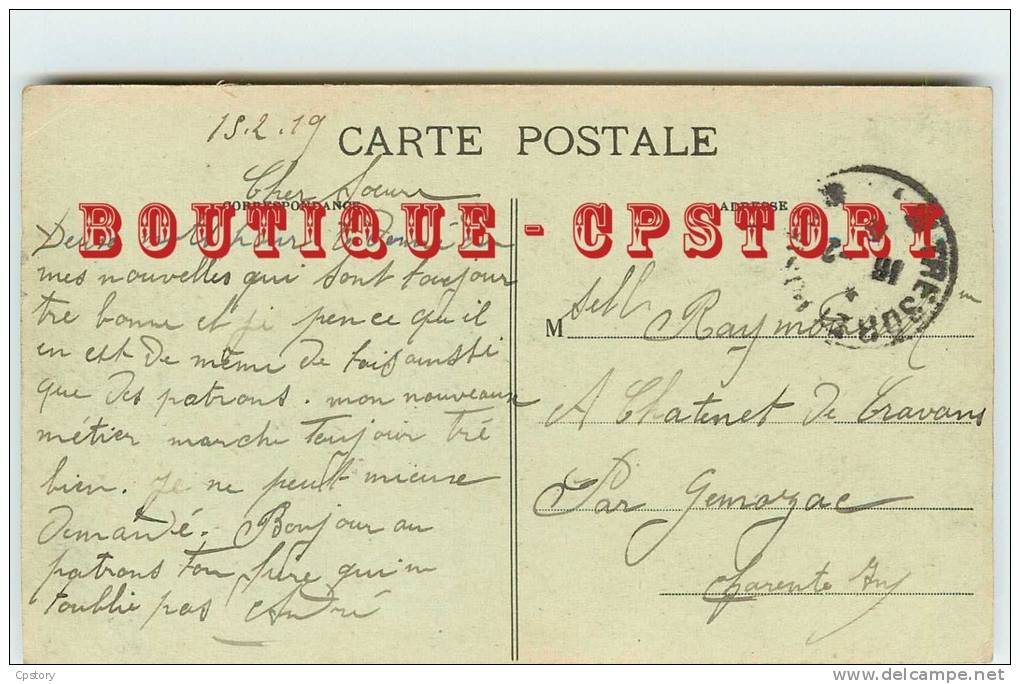 15.2.19
CARTE POSTALE
Cher Soeur
CORRESPONDANCE
ADRESSE
BOUTIQUE - CPSTORY
mes nouvelles qui sont toujour
tre bonne et ji pence qu'il
en est de même de toi aussi
que des patrons. mon nouveaux
métier marche toujour tré
bien. Je ne peut mieux
demandé. Bonjour au
patrons ton frère qui n
toublie pas André
TRESOR
16
2
M Selle Raymonde
A Chatenet de Cravans
Par Gemozac
Charente Inf
Cpstory
delcampe.net